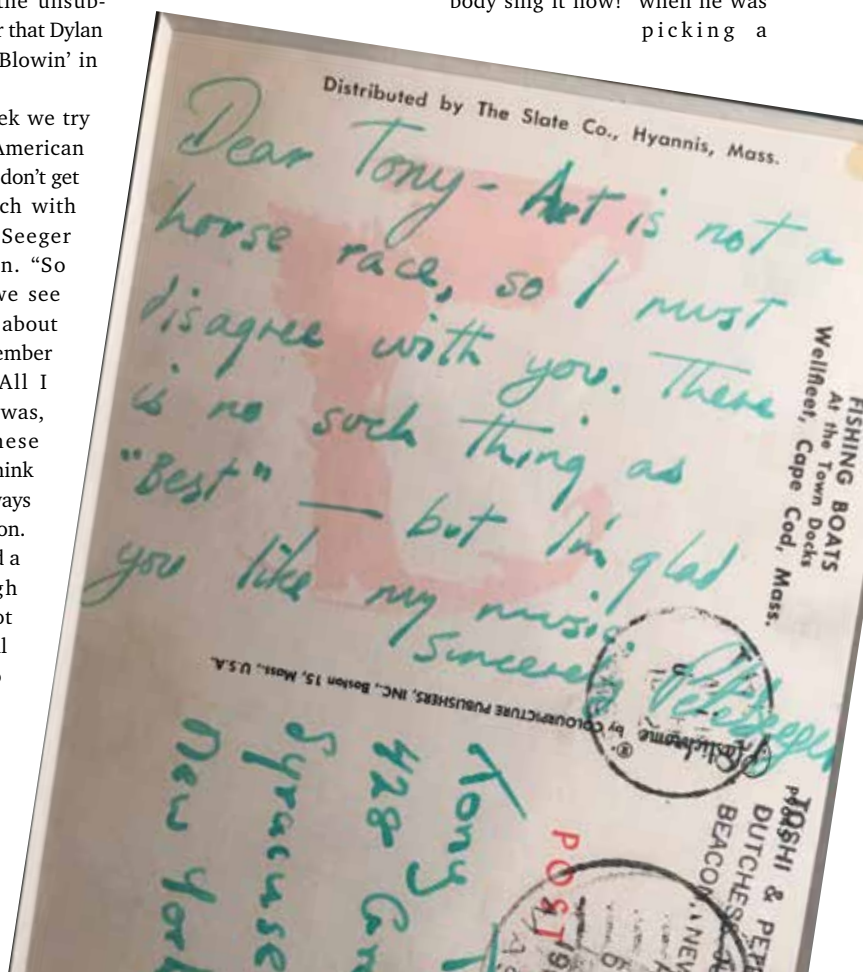 the unsub-
that Dylan
Blowin' in
ek we try
American
don't get
ch with
Seeger
n. “So
we see
about
ember
All I
was,
hese
hink
ways
on.
d a
gh
ot
body sing it now! when he was
picking a
Distributed by The Slate Co., Hyannis, Mass.
Dear Tony - Art is not a
horse race, so I must
disagree with you. There
is no such thing as
"Best" — but I'm glad
you like my music.
Sincerely Pete Seeger
FISHING BOATS
At the Town Docks
Wellfleet, Cape Cod, Mass.
Plastichrome ® by COLOURPICTURE PUBLISHERS, INC., Boston 15, Mass., U.S.A.
POST
TOSHI &
DUTCHESS
BEACON, NEW
Tony
428
Syracuse
New York